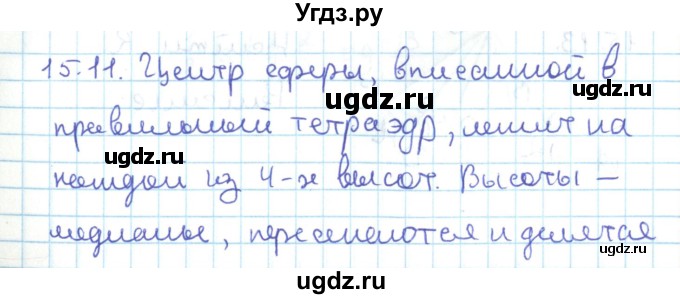 Угдз.ру
15.11. Центр сферы, вписанной в
ugdz.ru ugdz.ru
правильный тетраэдр, лежит на
ugdz.ru ugdz.ru
каждой из 4-х высот. Высоты –
ugdz.ru
медианы, пересекаются и делятся
ugdz.ru ugdz.ru